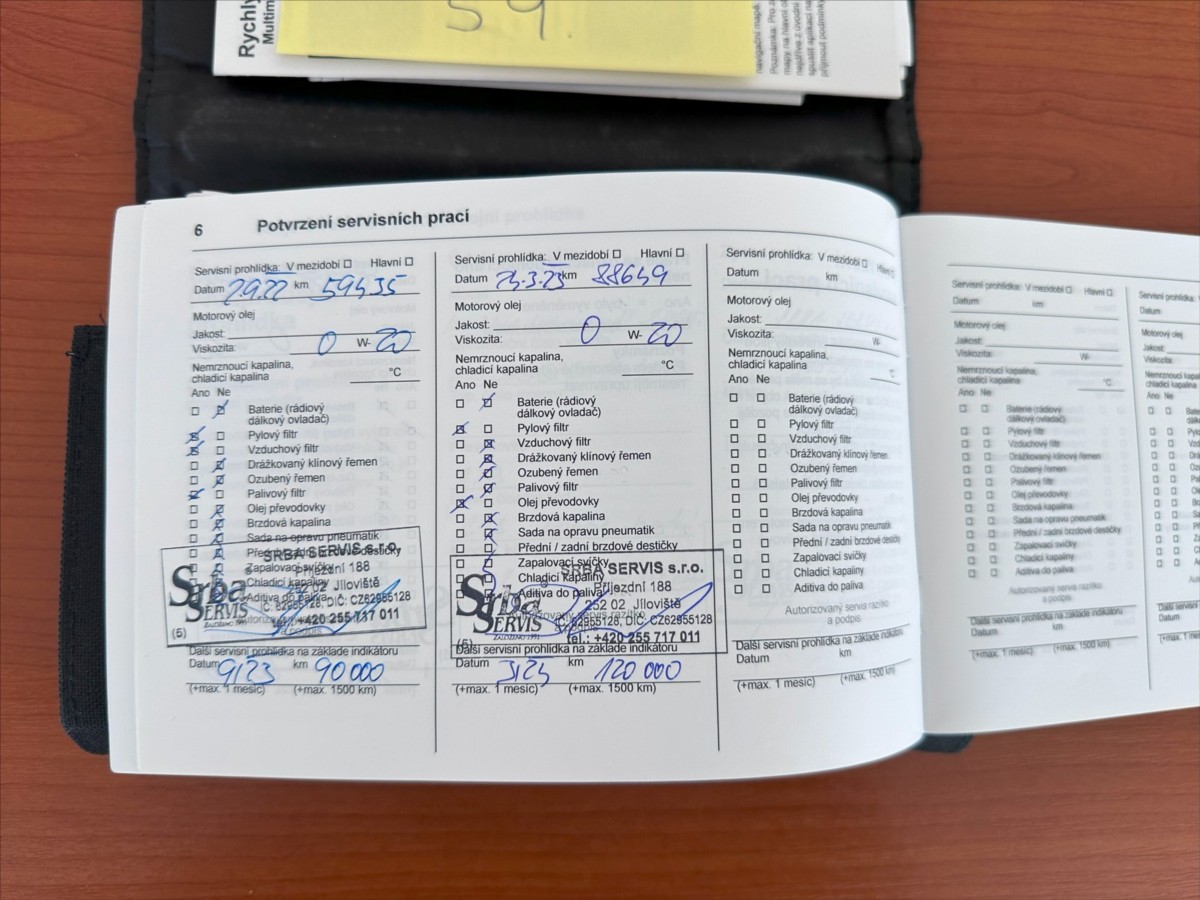 Rychl
Multim
59.
6 Potvrzení servisních prací
Servisní prohlídka: V mezidobí Hlavní
Datum 2.9.22 km 59435
Motorový olej
Jakost:
Viskozita: 0 W- 20
Nemrznoucí kapalina,
chladicí kapalina °C
Ano Ne
Baterie (rádiový
dálkový ovladač)
Pylový filtr
Vzduchový filtr
Drážkovaný klínový řemen
Ozubený řemen
Palivový filtr
Olej převodovky
Brzdová kapalina
Sada na opravu pneumatik
Zapalovací svíčky
Chladicí kapaliny
Aditiva do paliva
SRBA SERVIS s.r.o.
Příjezdní 188
252 02 Jíloviště
IČ: 62955128, DIČ: CZ62955128
tel.: +420 255 717 011
Srba
SERVIS
ZALOŽENO 1991
(5)
Další servisní prohlídka na základě indikátoru
Datum 9/23 km 90 000
(+max. 1 měsíc) (+max. 1500 km)
Servisní prohlídka: V mezidobí Hlavní
Datum 24.3.23 km 88649
Motorový olej
Jakost:
Viskozita: 0 W- 20
Nemrznoucí kapalina,
chladicí kapalina °C
Ano Ne
Baterie (rádiový
dálkový ovladač)
Pylový filtr
Vzduchový filtr
Drážkovaný klínový řemen
Ozubený řemen
Palivový filtr
Olej převodovky
Brzdová kapalina
Sada na opravu pneumatik
Přední / zadní brzdové destičky
Zapalovací svíčky
Chladicí kapaliny
Aditiva do paliva
SRBA SERVIS s.r.o.
Příjezdní 188
252 02 Jíloviště
IČ: 62955128, DIČ: CZ62955128
tel.: +420 255 717 011
Srba
SERVIS
ZALOŽENO 1991
(5)
Další servisní prohlídka na základě indikátoru
Datum 3/25 km 120 000
(+max. 1 měsíc) (+max. 1500 km)
Servisní prohlídka: V mezidobí
Datum km
Motorový olej
Jakost:
Viskozita: W-
Nemrznoucí kapalina,
chladicí kapalina °C
Ano Ne
Baterie (rádiový
dálkový ovladač)
Pylový filtr
Vzduchový filtr
Drážkovaný klínový řemen
Ozubený řemen
Palivový filtr
Olej převodovky
Brzdová kapalina
Sada na opravu pneumatik
Přední / zadní brzdové destičky
Zapalovací svíčky
Chladicí kapaliny
Aditiva do paliva
Autorizovaný servis razítko
a podpis
Další servisní prohlídka na základě indikátoru
Datum km
(+max. 1 měsíc) (+max. 1500 km)
Servisní prohlídka: V mezidobí Hlavní
Datum km
Motorový olej
Jakost:
Viskozita: W-
Nemrznoucí kapalina,
chladicí kapalina °C
Ano Ne
Baterie (rádiový
dálkový ovladač)
Pylový filtr
Vzduchový filtr
Drážkovaný klínový řemen
Ozubený řemen
Palivový filtr
Olej převodovky
Brzdová kapalina
Sada na opravu pneumatik
Přední / zadní brzdové destičky
Zapalovací svíčky
Chladicí kapaliny
Aditiva do paliva
Autorizovaný servis razítko
a podpis
Další servisní prohlídka na základě indikátoru
Datum km
(+max. 1 měsíc) (+max. 1500 km)
Servisní prohlídka:
Datum
Motorový olej
Jakost:
Viskozita:
Ano Ne